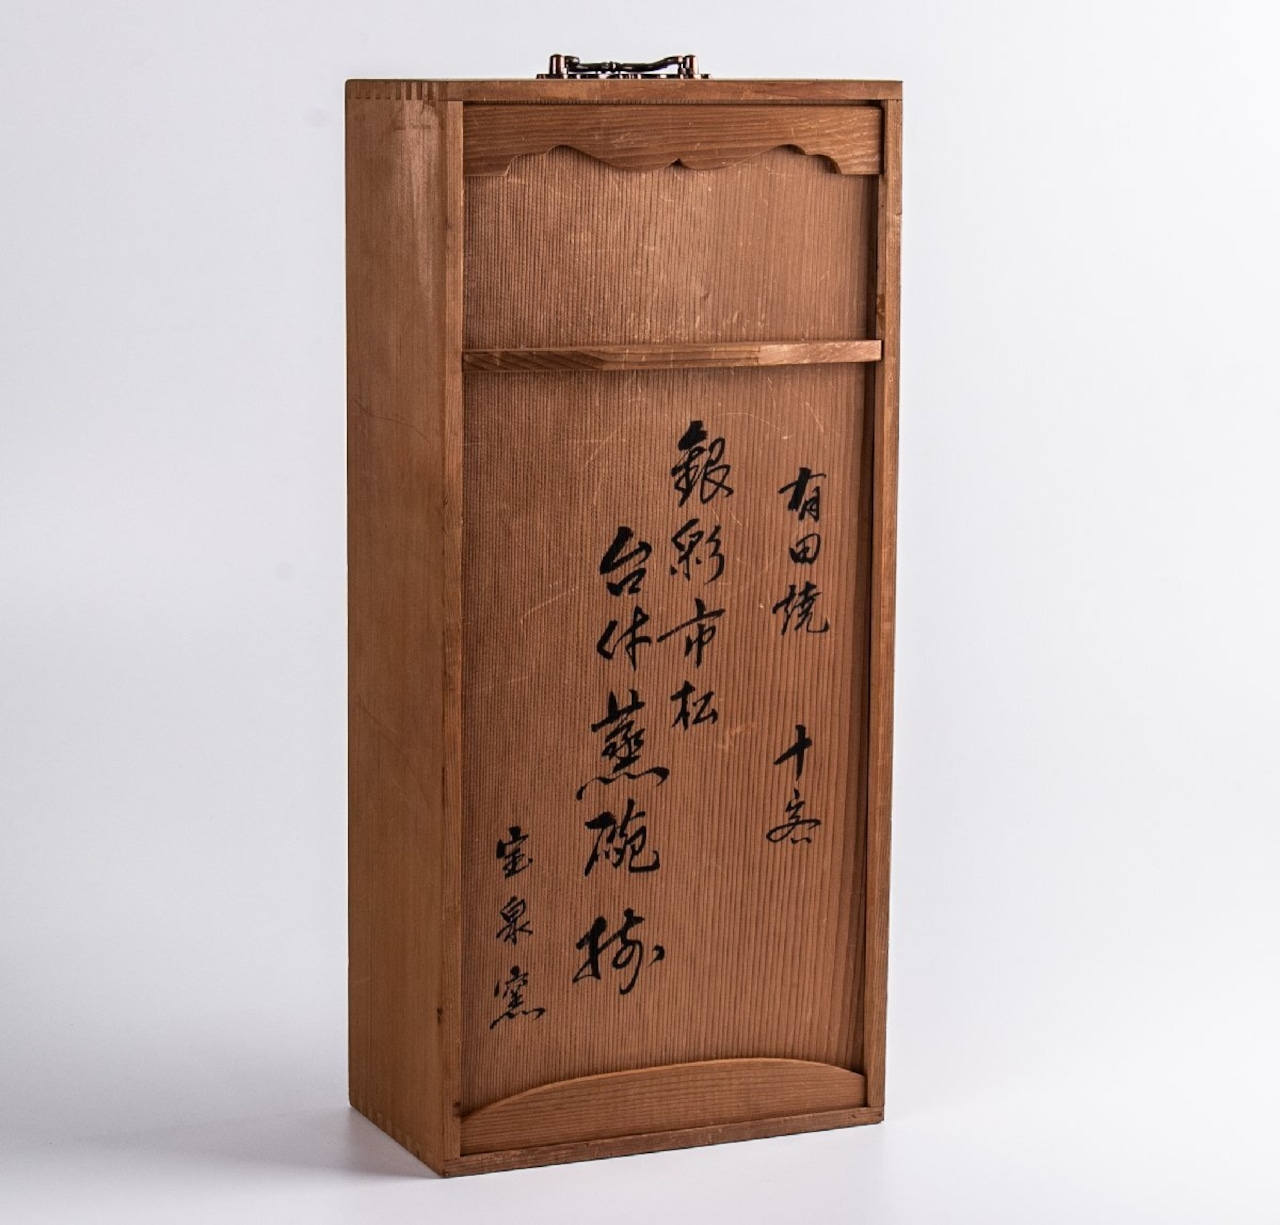 有田焼 十客
銀彩市松
台付蒸碗揃
宝泉窯